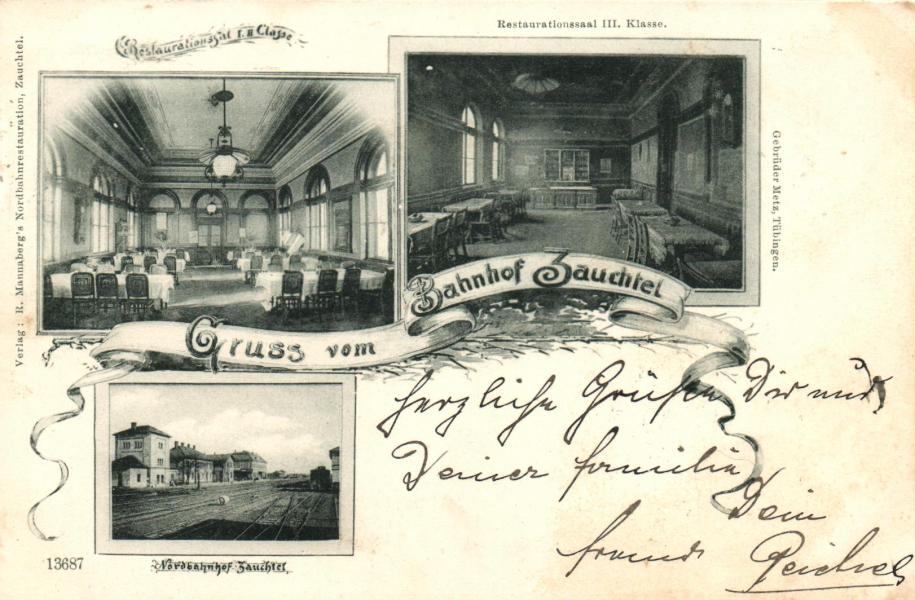 Restaurationssaal III. Klasse.
Restaurationssal I. II Classe
Verlag: R. Mannaberg's Nordbahnrestauration, Zauchtel.
Gebrüder Metz, Tübingen.
Gruss vom
Bahnhof Zauchtel
herzliche Grüße Dir und
Deiner familie
Dein
freund Reichel
13687
Nordbahnhof Zauchtel